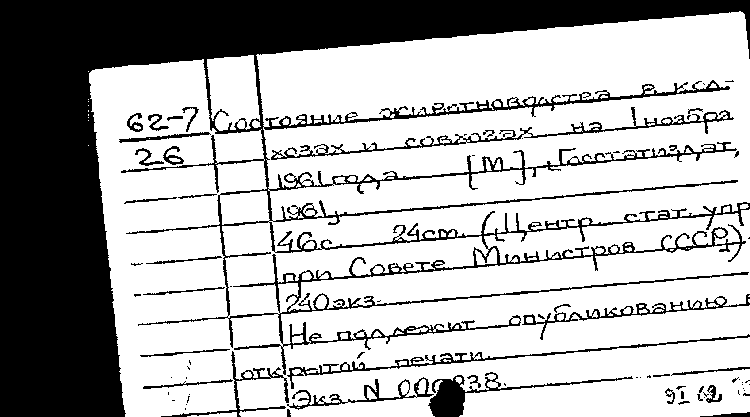 62-7 Состояние животноводства в кол-
26 хозах и совхозах на 1 ноября
1961 года. [М], Госстатиздат,
1961,.
46с. 24см. (Центр. стат. упр
при Совете Министров СССР)
240экз.
Не подлежит опубликованию в
открытой печати.
Экз. N